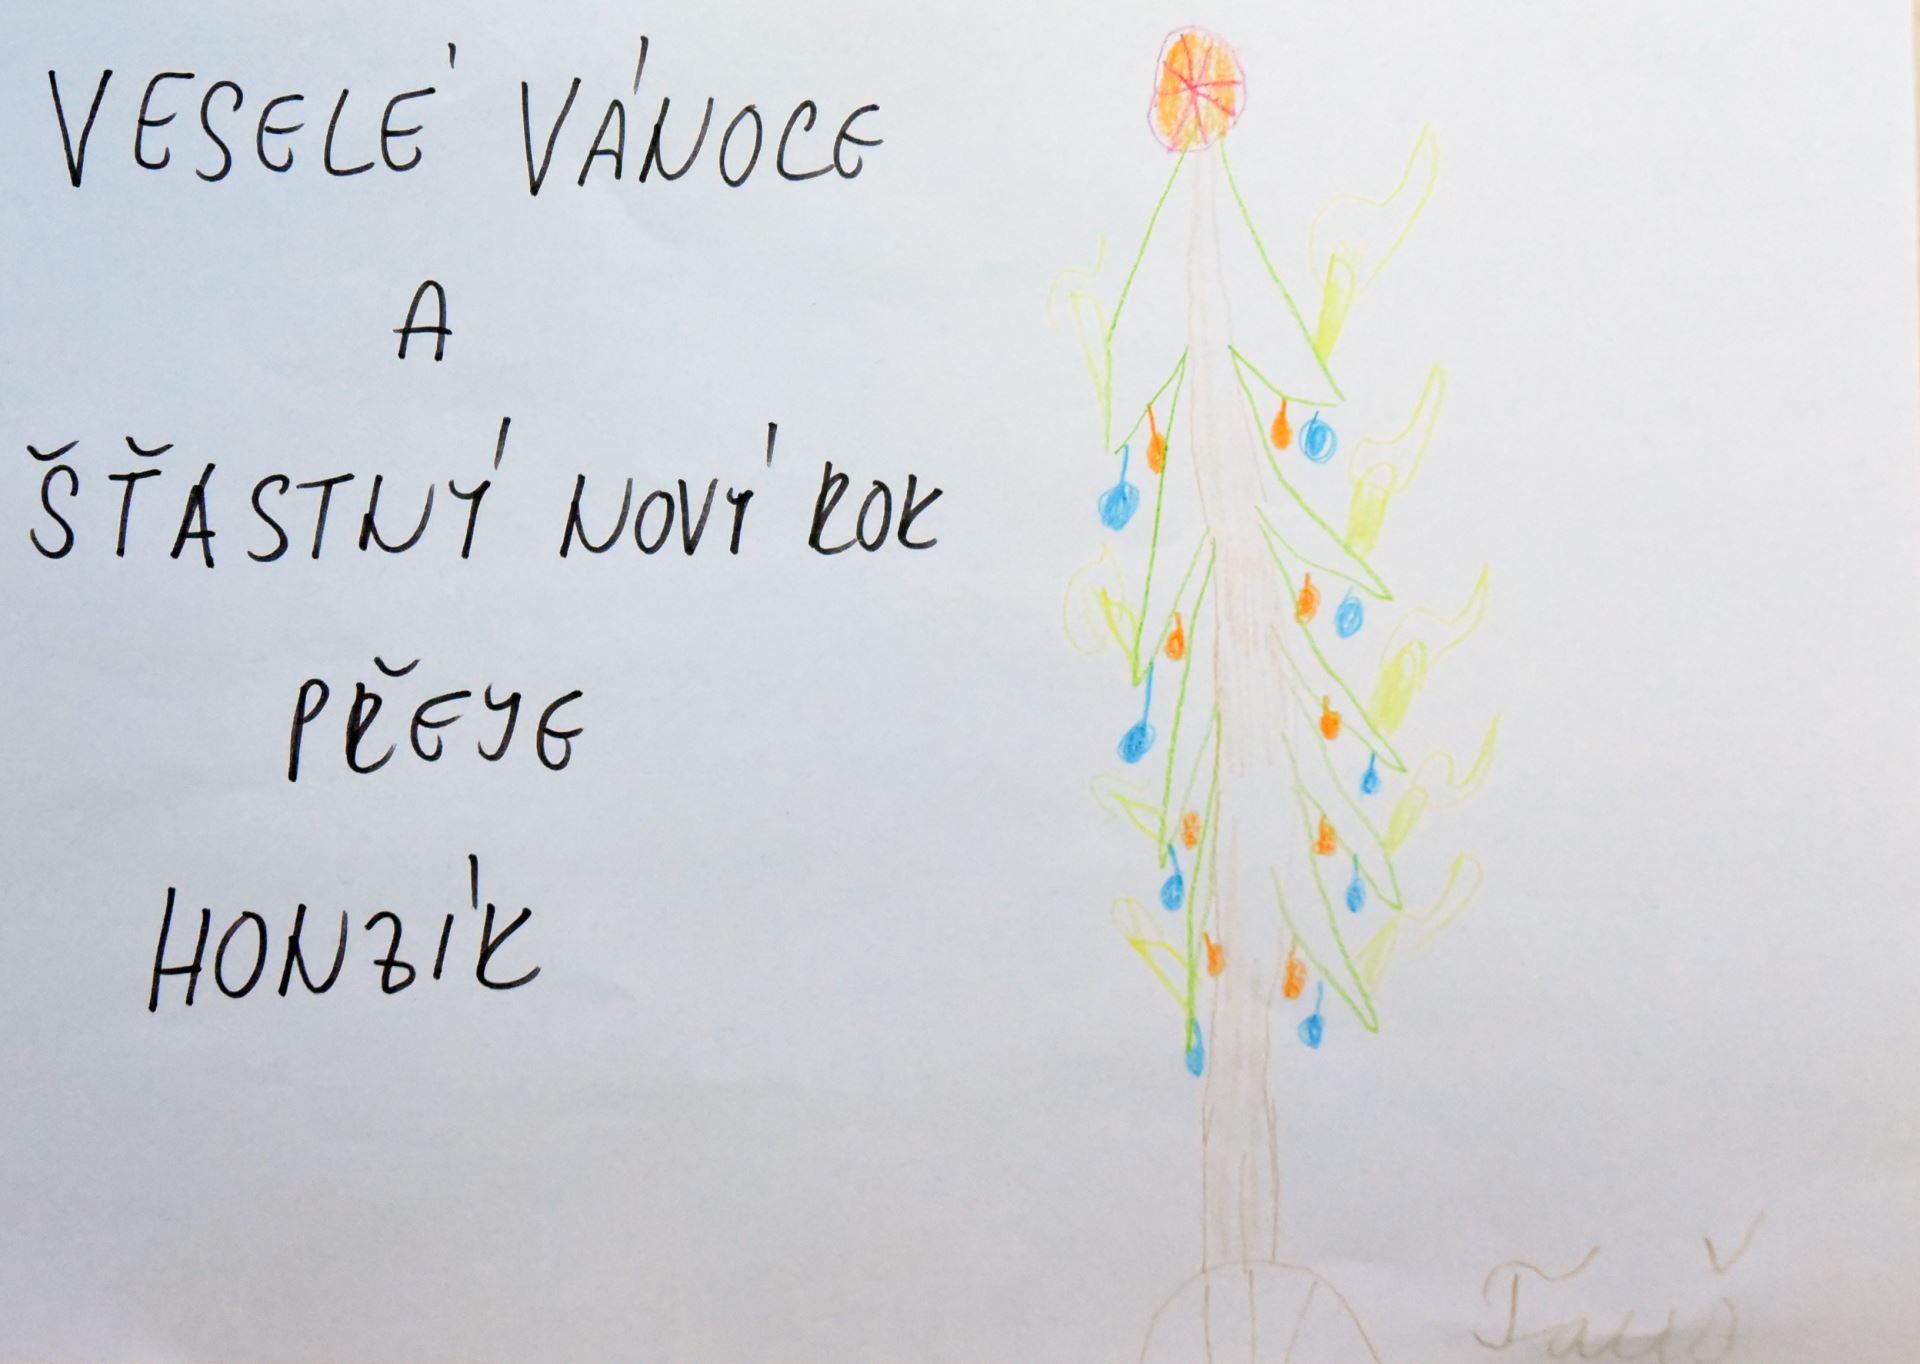 VESELÉ VÁNOCE
A
ŠŤASTNÝ NOVÝ ROK
PŘEJE
HONZÍK